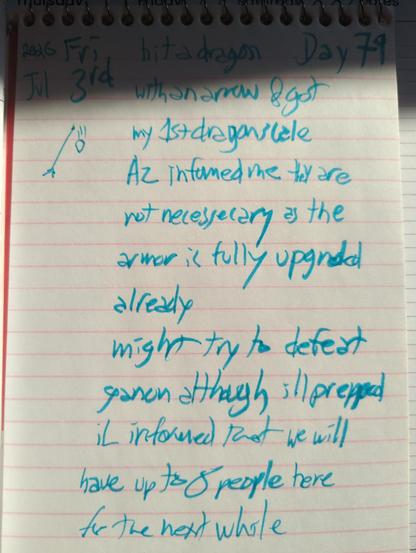 2026 Fri hit a dragon Day 79
Jul 3rd with an arrow & got
my 1st dragon scale
Az informed me they are
not necessecary as the
armor is fully upgraded
already
might try to defeat
ganon although ill prepped
iL informed that we will
have up to 8 people here
for the next whole